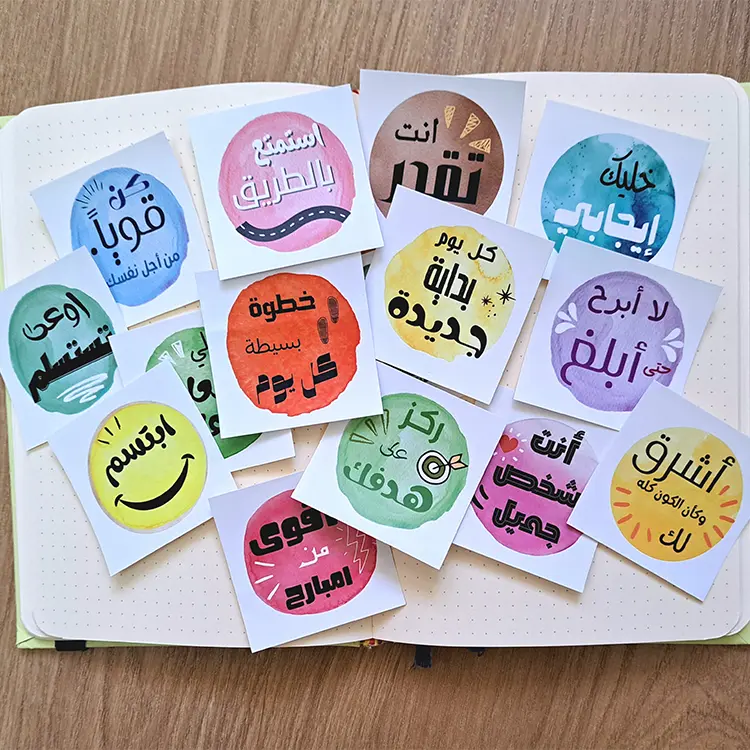 كن
قوياً.
من أجل نفسك
استمتع
بالطريق
أنت
تقدر
خليك
إيجابي
اوعى
تستسلم
خطوة
بسيطة
كل يوم
كل يوم
بداية
جديدة
لا أبرح
حتى أبلغ
ابتسم
ركز
على
هدفك
أنت
شخص
جميل
أشرق
وكأن الكون كله
لك
أقوى
من
امبارح